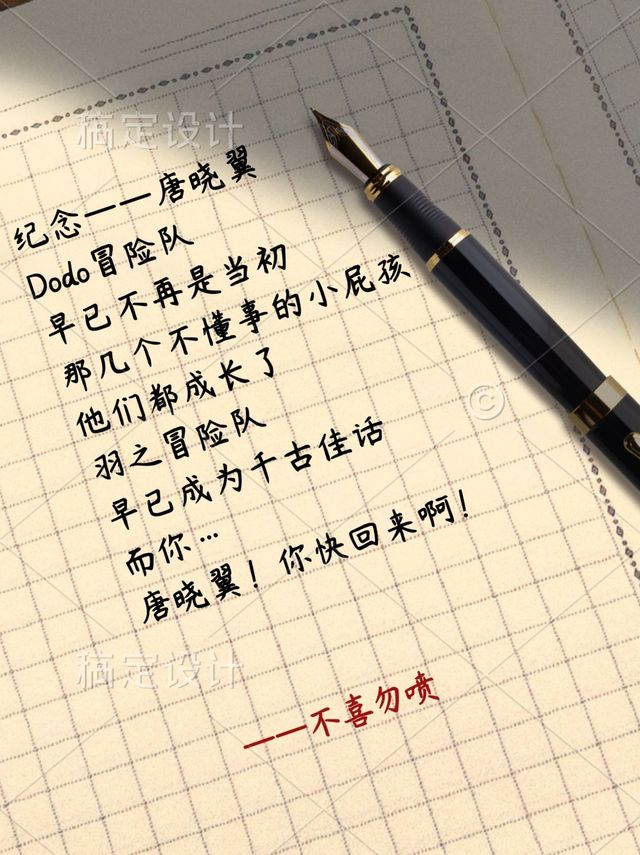 稿定设计
纪念——唐晓翼
Dodo冒险队
早已不再是当初
那几个不懂事的小屁孩
他们都成长了
羽之冒险队
早已成为千古佳话
而你…
唐晓翼！你快回来啊！
稿定设计
——不喜勿喷